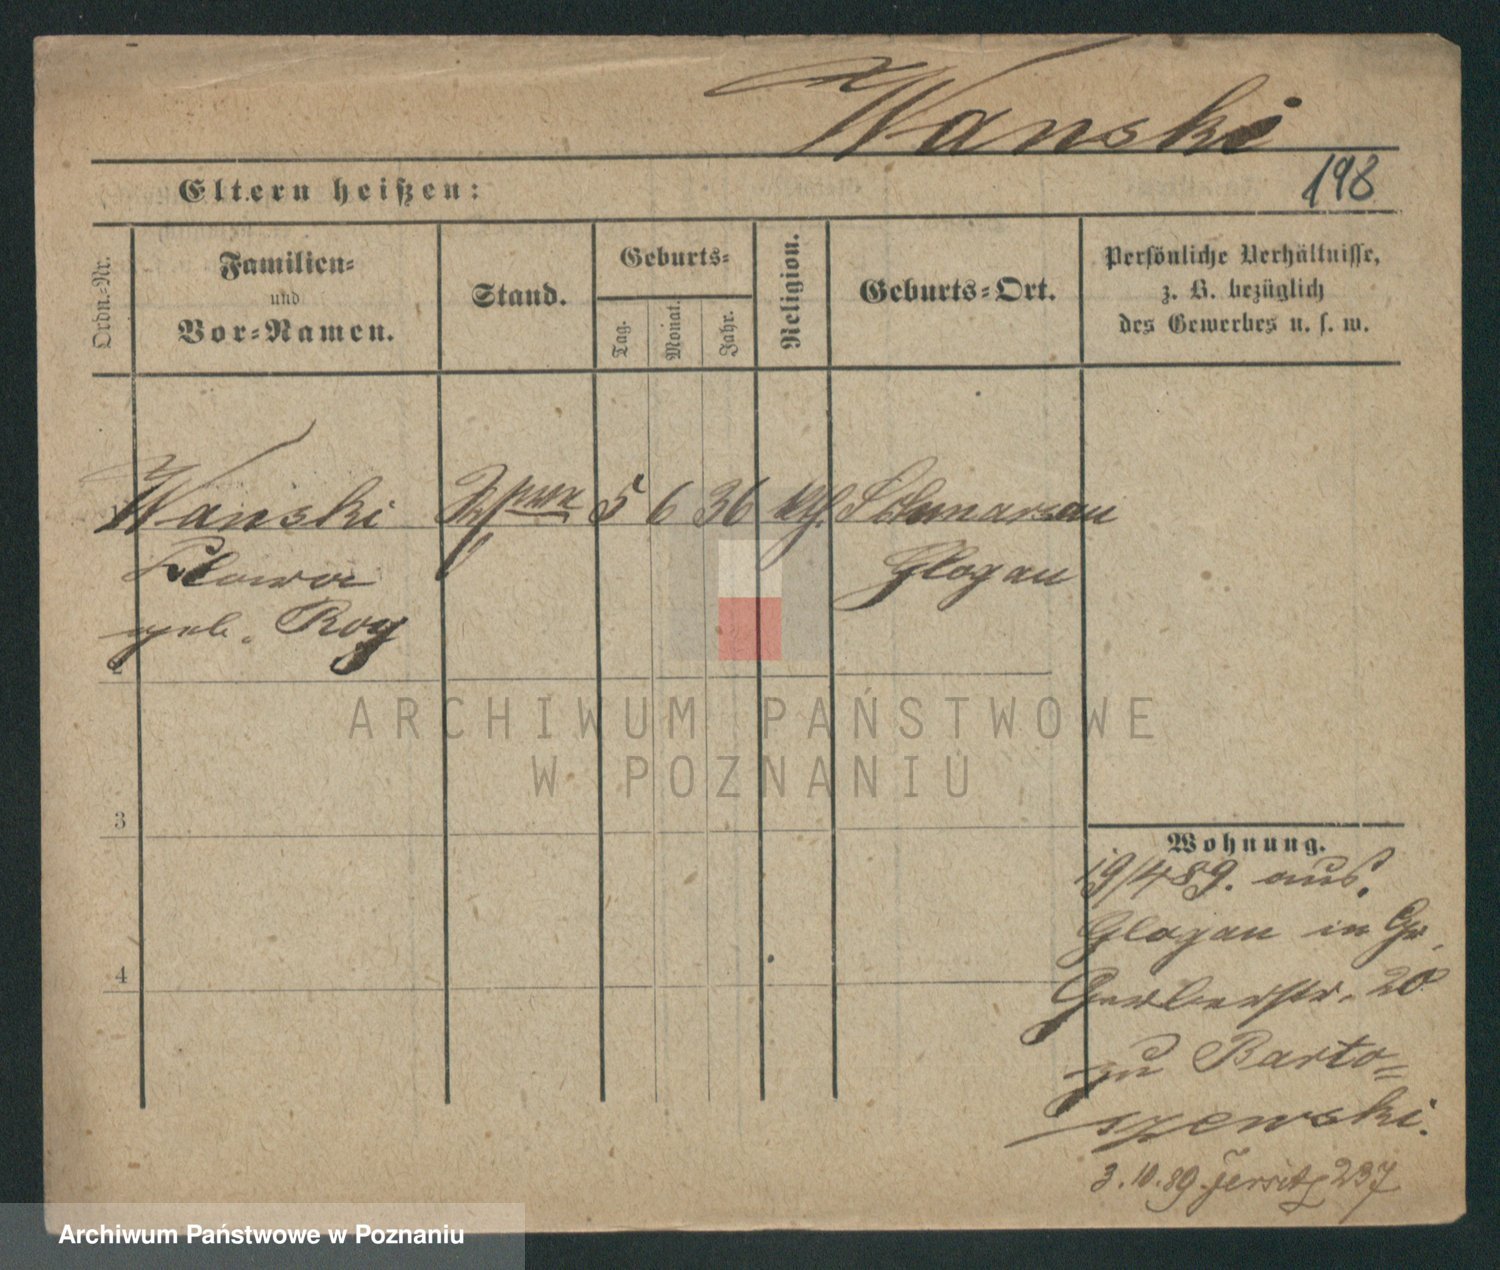 Wanski
198
Eltern heißen:
Ordn.-Nr.
Familien-
und
Vor-Namen.
Stand.
Geburts-
Tag.
Monat.
Jahr.
Religion.
Geburts-Ort.
Persönliche Verhältnisse,
z. B. bezüglich
des Gewerbes u. s. w.
Wanski 5 6 36 kth. Schmarsau
Glogau
geb. Roy
2
3
4
Wohnung.
19/4 89. aus
Glogau in Gr.
Gerberstr. 20
zu Barto-
szewski.
3.10.89 Jersitz 237
ARCHIWUM PAŃSTWOWE
W POZNANIU
Archiwum Państwowe w Poznaniu